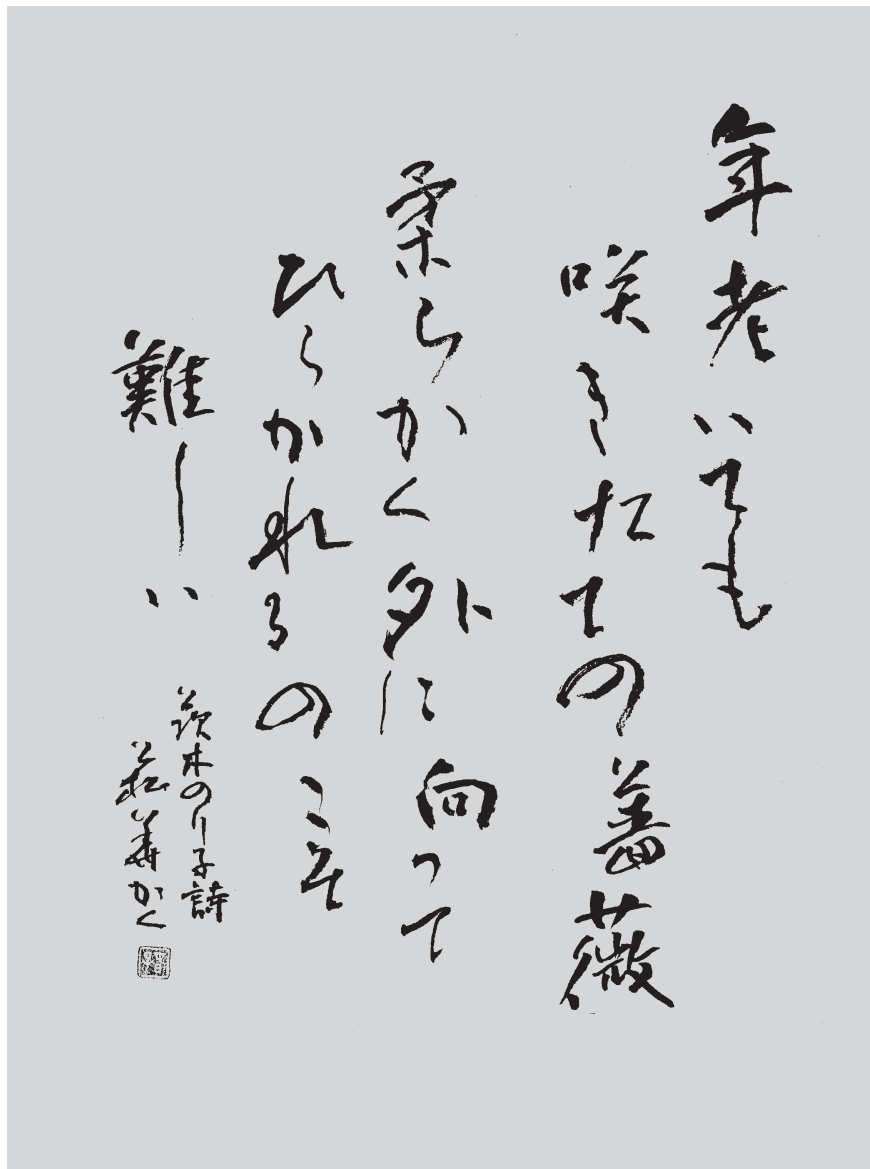 年老いても
咲きたての薔薇
柔らかく外に向って
ひらかれるのこそ
難しい
茨木のり子詩
菘華かく